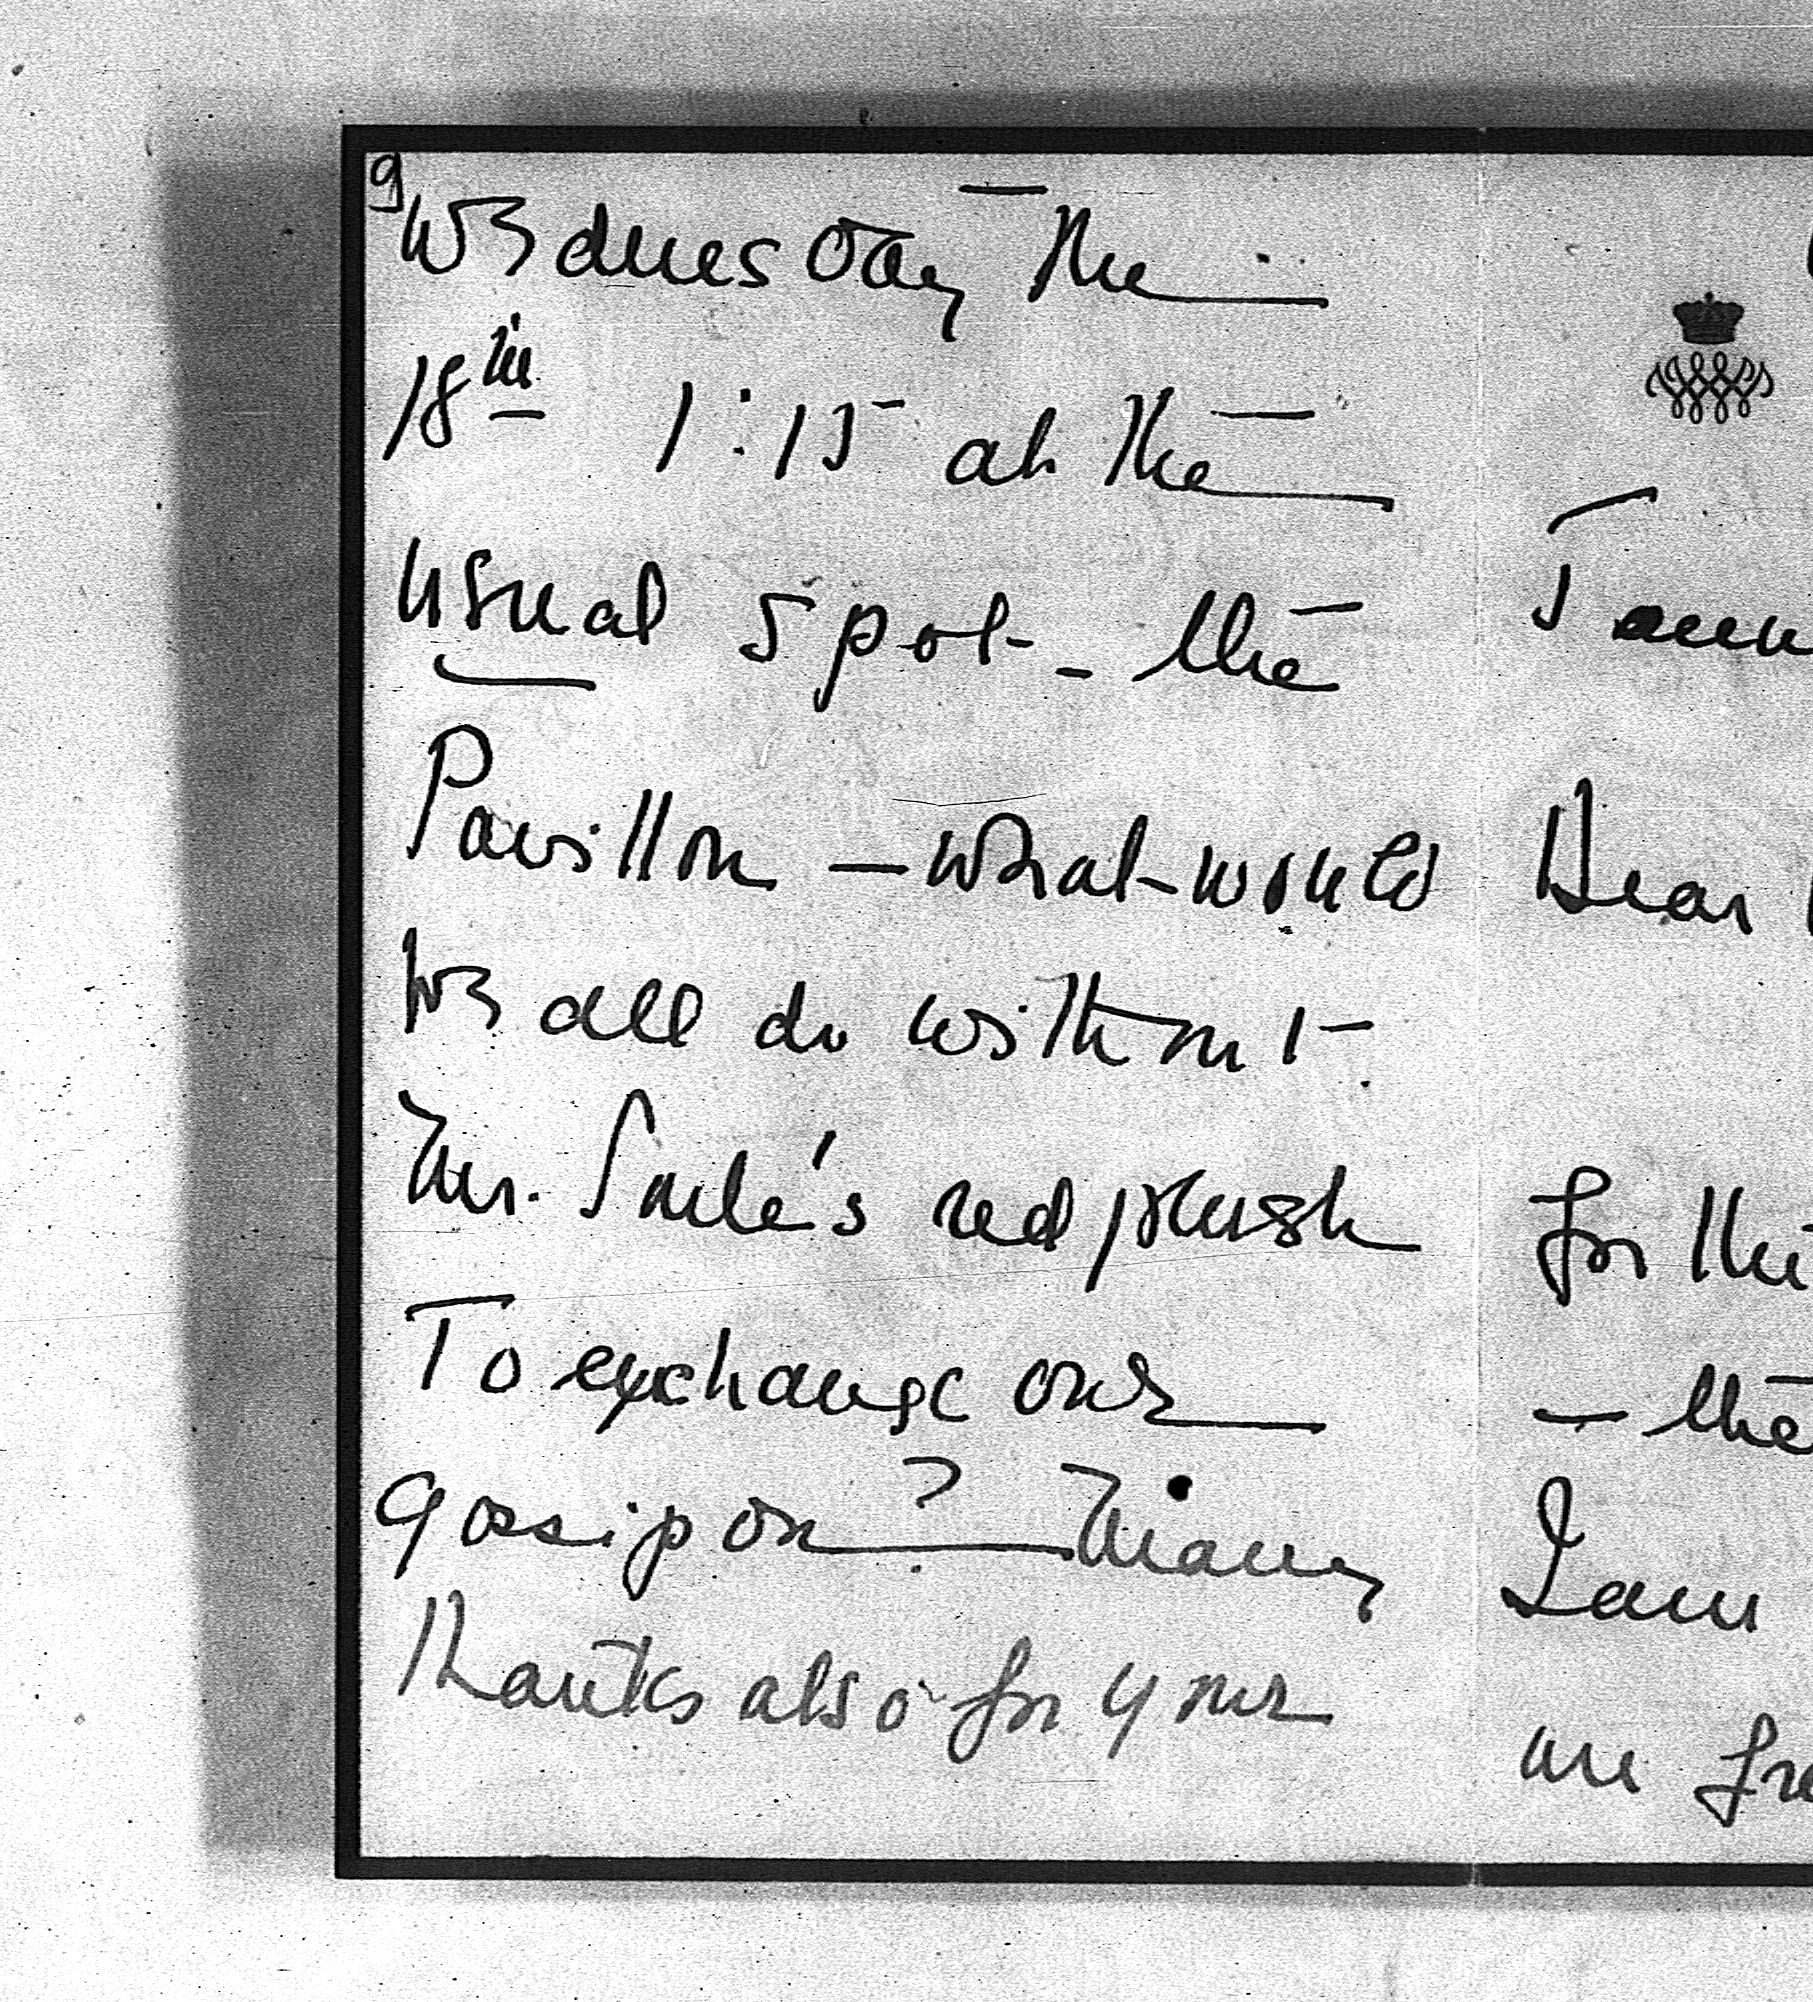 9
Wednesday the
18th 1:15 at the
usual spot - the
Pavillon - what would
we all do without
Mr. Soulé's red plush
To exchange our
gossip on? Many
thanks also for your
Dear
for the
- the
I am
we fre